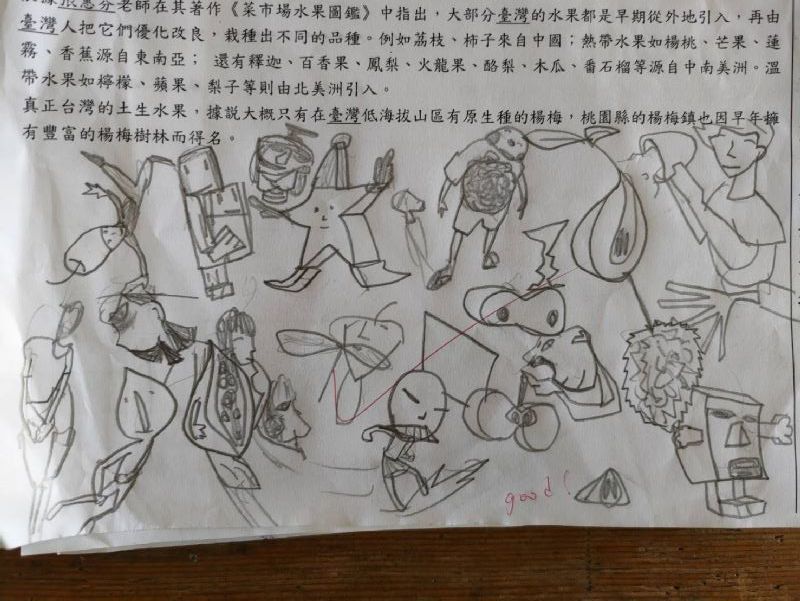 老師在其著作《菜市場水果圖鑑》中指出，大部分臺灣的水果都是早期從外地引入，再由
臺灣人把它們優化改良，栽種出不同的品種。例如荔枝、柿子來自中國；熱帶水果如楊桃、芒果、蓮
霧、香蕉源自東南亞； 還有釋迦、百香果、鳳梨、火龍果、酪梨、木瓜、番石榴等源自中南美洲。溫
帶水果如檸檬、蘋果、梨子等則由北美洲引入。
真正台灣的土生水果，據說大概只有在臺灣低海拔山區有原生種的楊梅，桃園縣的楊梅鎮也因早年擁
有豐富的楊梅樹林而得名。
good!